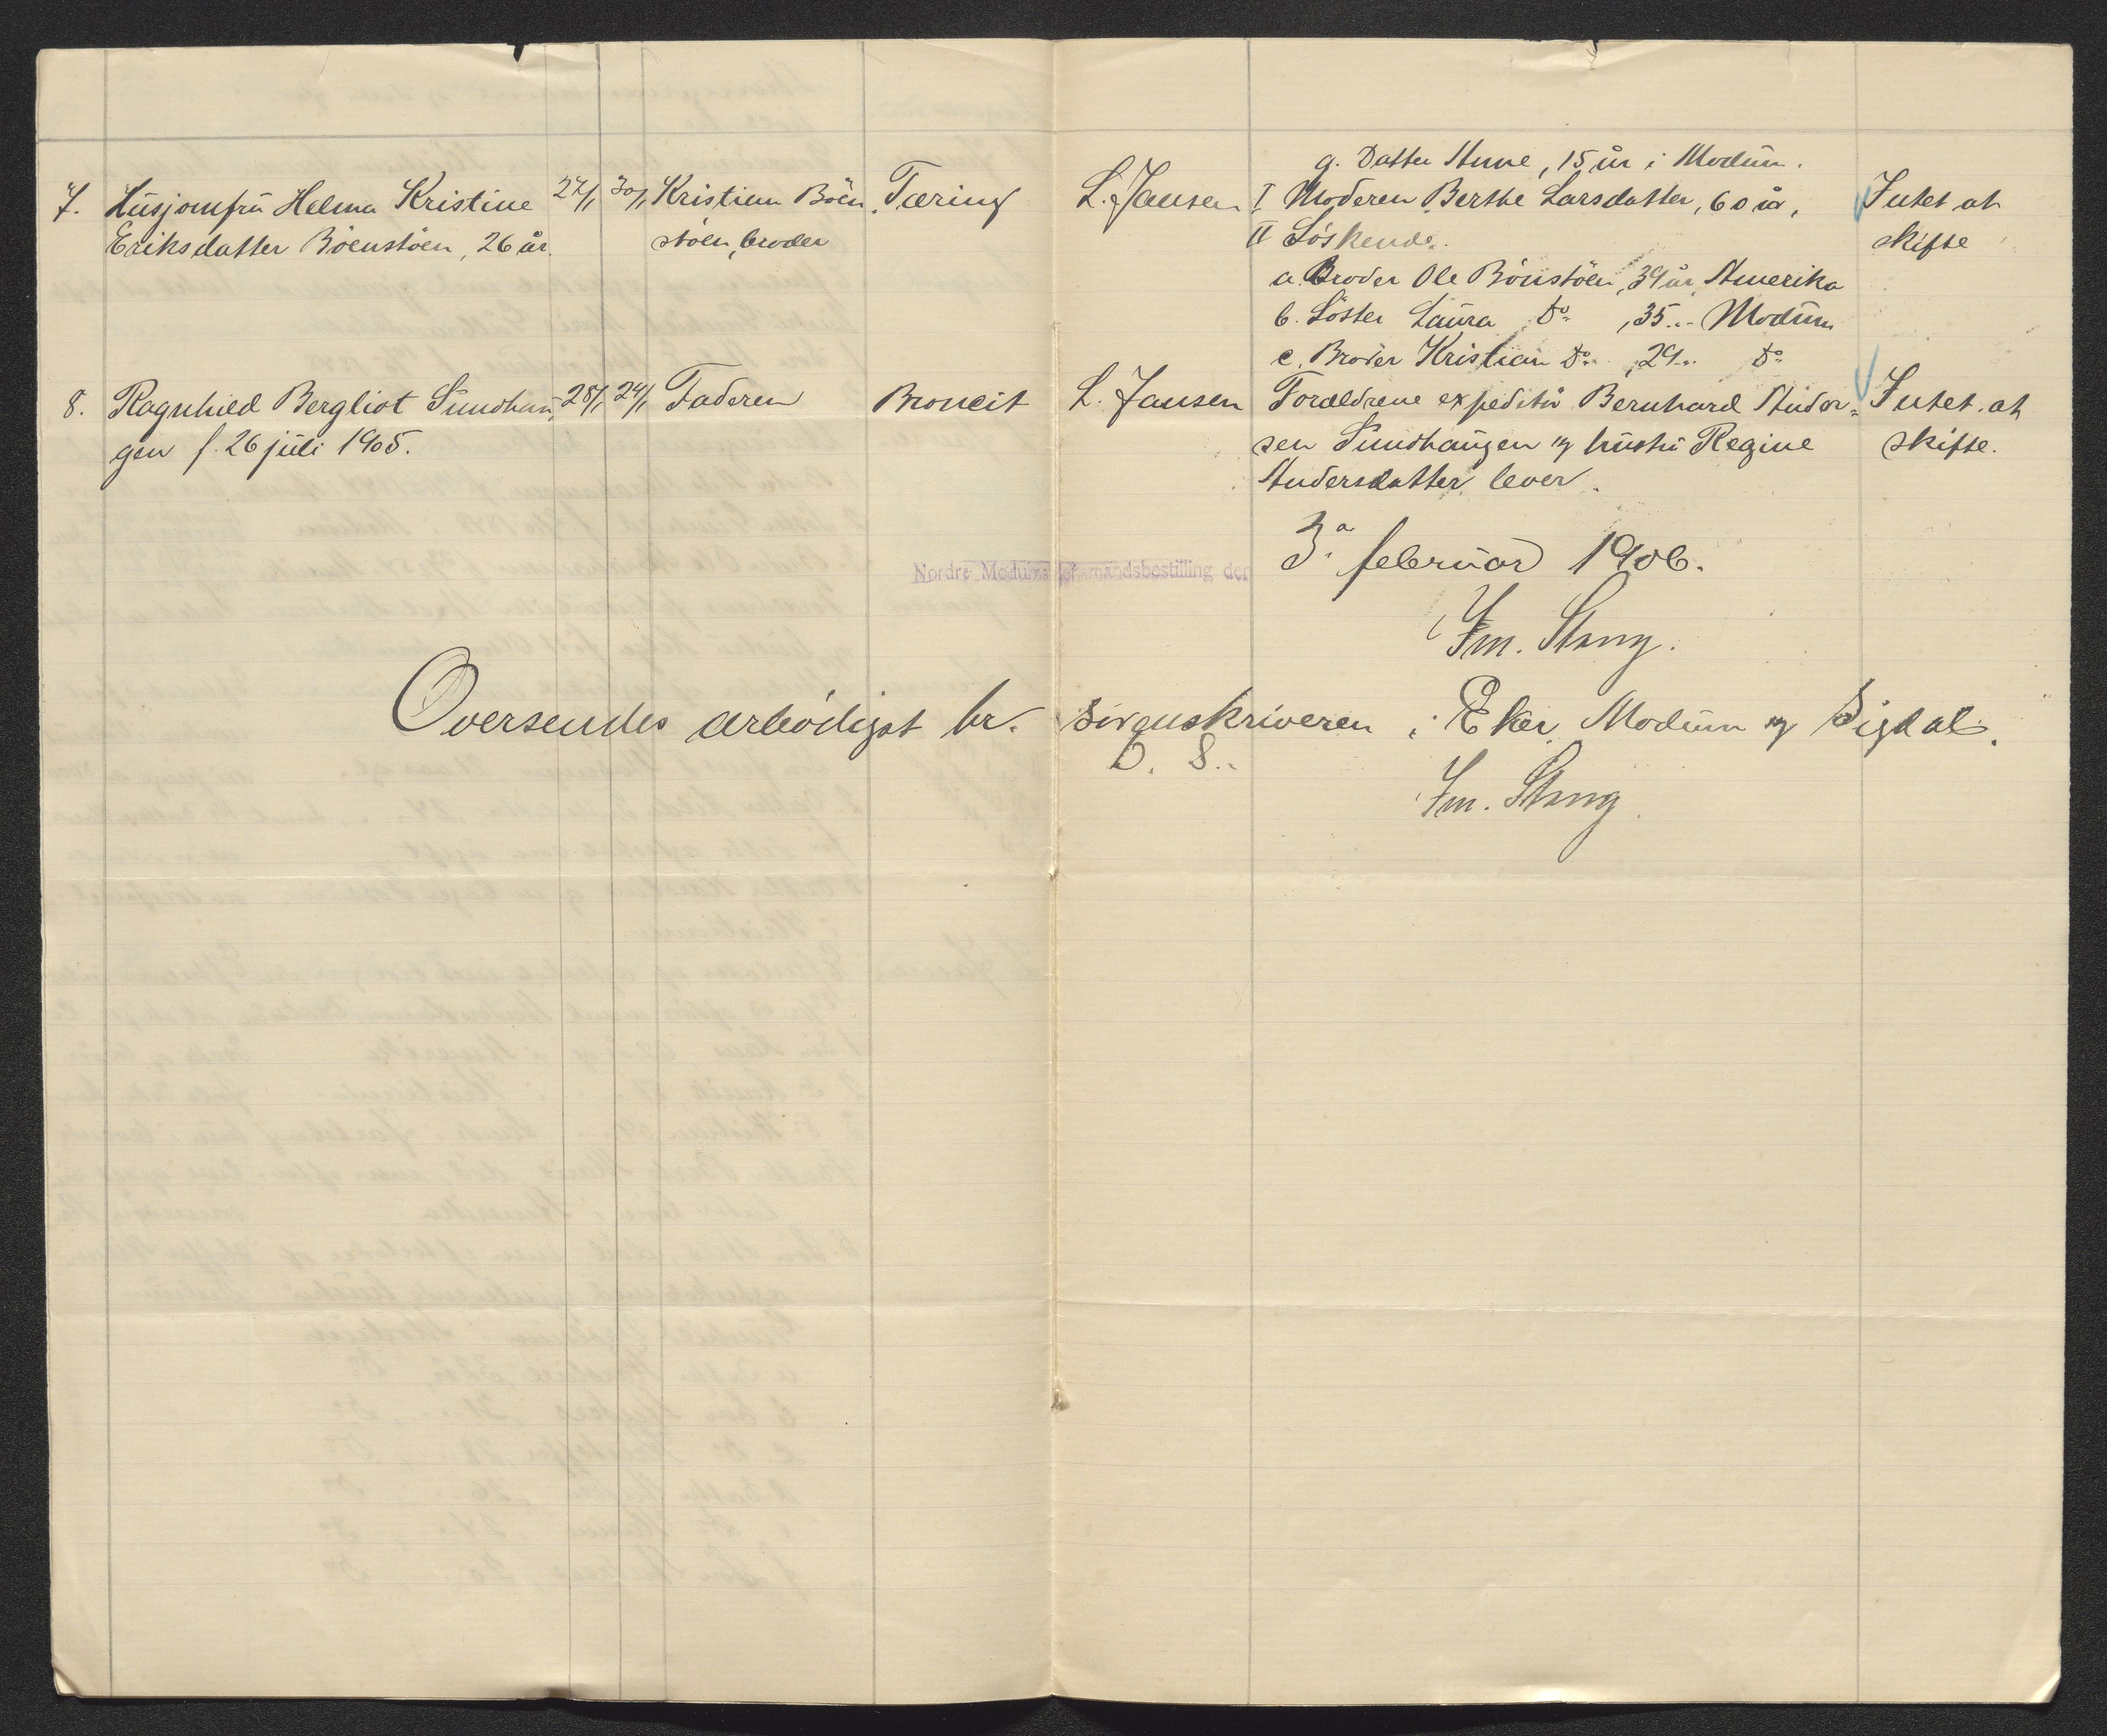 g. Datter Anne, 15 år i Modum.
7. Husjomfru Helma Kristine 27/1 30/1 Kristian Böen Tæring L. Jansen I Moderen Berthe Larsdatter, 60 år, Intet at
Eriksdatter Böenstöen, 26 år. stöen, broder II Söskende. skifte
a. Broder Ole Bönstöen, 39 år, Amerika
b. Söster Laura Do , 35 .. - Modum
c. Broder Kristian Do , 29 .. Do
8. Ragnhild Bergliot Sundhau 28/1 24/1 Faderen Broncit L. Jansen Forældrene expeditör Bernhard Ander= Intet at
gen f. 26 juli 1905. sen Sundhaugen og hustru Regine skifte.
Andersdatter lever.
Nordre Modums lensmandsbestilling den 3a februar 1906.
Im. Stang.
Oversendes ærbödigst hr. sorenskriveren i Eker, Modum og Sigdal.
D. S.
Im. Stang.